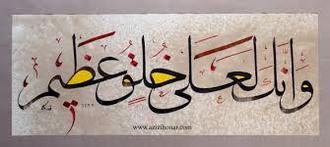 وانك لعلى خلق عظيم
www.azizihonar.com